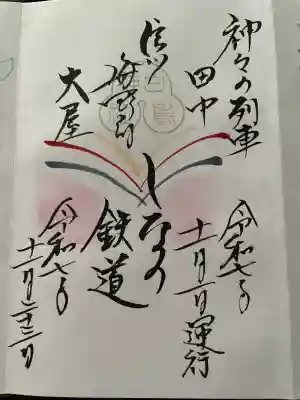 神々の列車
田中
大屋
しなの
鉄道
令和七年
十一月一日運行
令和七年
十一月二十三日